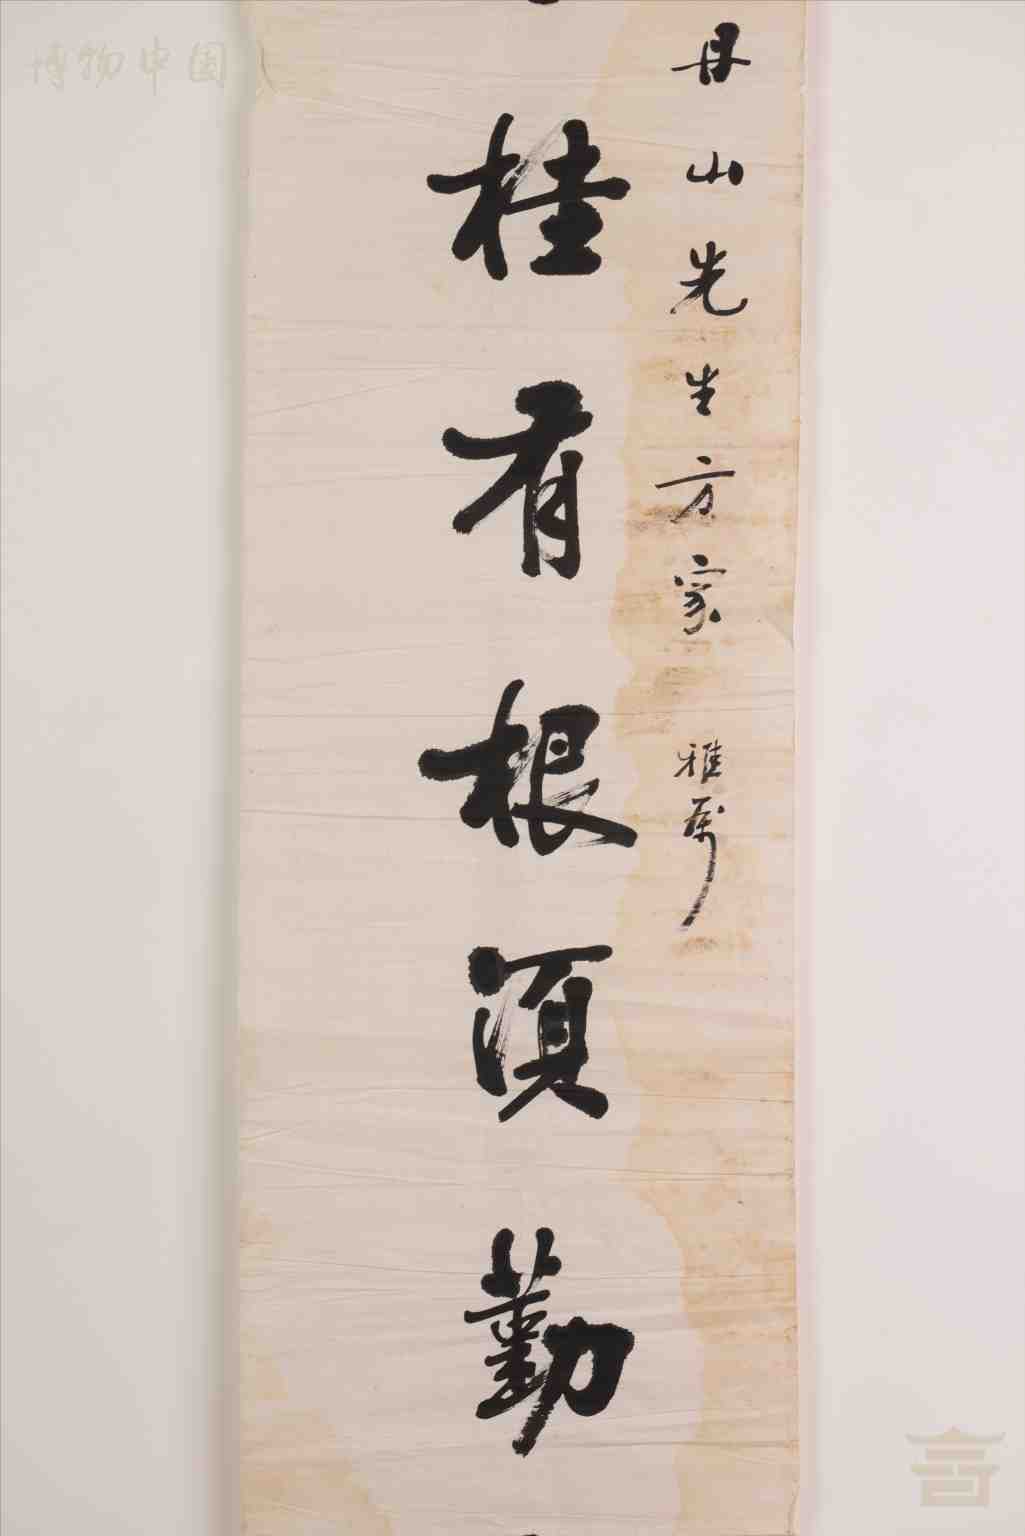 博物中国
丹山先生方家 雅属
桂有根須勤